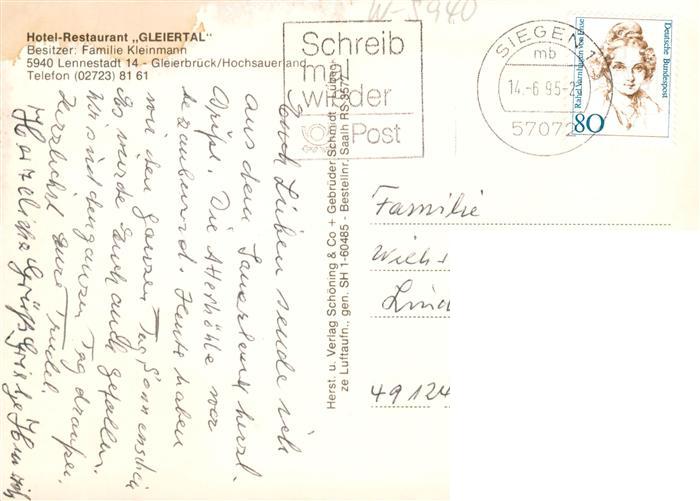 W-5940
Hotel-Restaurant „GLEIERTAL"
Besitzer: Familie Kleinmann
5940 Lennestadt 14 - Gleierbrück/Hochsauerland
Telefon (02723) 81 61
Schreib
mal
wieder
Post
SIEGEN 1
mb
14.-6 95-2
57072
Deutsche Bundespost
Rahel Varnhagen von Ense
80
Herst. u. Verlag Schöning & Co + Gebrüder Schmidt, Lübeck
ze Luftaufn., gen. SH 1-60485 - Bestellnr. Saalh RS 3577
Euch Lieben sende ich
aus dem Sauerland herzl.
Grüße. Die Attahöhle war
bezaubernd. Heute haben
wir den ganzen Tag Sonnenschein
Es würde Euch auch gefallen.
Wir sind den ganzen Tag draußen.
Herzlichst Eure Trudel.
Herzliche Grüße
Familie
Wilh
Lind
49124